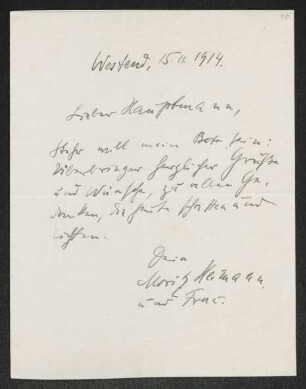 Westend, 15.11.1914.
Lieber Hauptmann,
Stehr will mein Bote sein:
Überbringer herzlicher Grüße
und Wünsche, zu allen Ge-
danken, die heute schaffen und
lichten.
Dein
Moritz Heimann
und Frau.